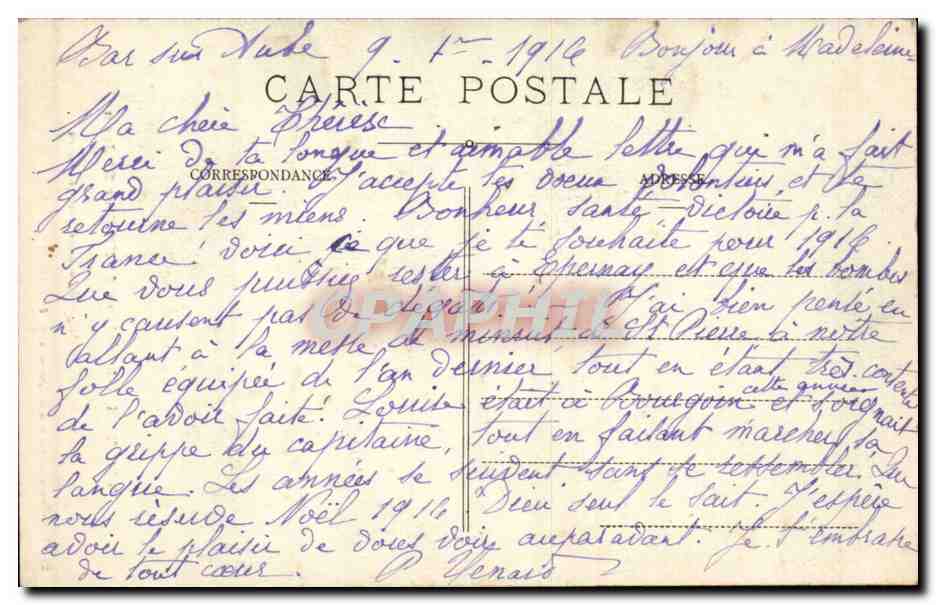 Bar sur Aube 9. 1er. 1916 Bonjour à Madeleine
CARTE POSTALE
Ma chère Thérèse
Merci de ta longue et aimable lettre qui m'a fait
CORRESPONDANCE ADRESSE
grand plaisir. J'accepte tes voeux volontiers et te
retourne les miens. Bonheur, santé, victoire p. la
France! voici ce que je te souhaite pour 1916.
Que vous puissiez rester à Epernay et que les bombes
n'y causent pas de dégâts! J'ai bien pensé, en
CPAPHIL
allant à la messe de minuit à St Pierre à notre
folle équipée de l'an dernier, tout en étant très contente
de l'avoir faite! Louise était à Bourgoin cette année et soignait
la grippe du capitaine, tout en faisant marcher sa
langue. Les années se suivent sans se ressembler. Que
nous réserve Noël 1916 Dieu seul le sait. J'espère
avoir le plaisir de vous voir auparavant. Je t'embrasse
de tout coeur.